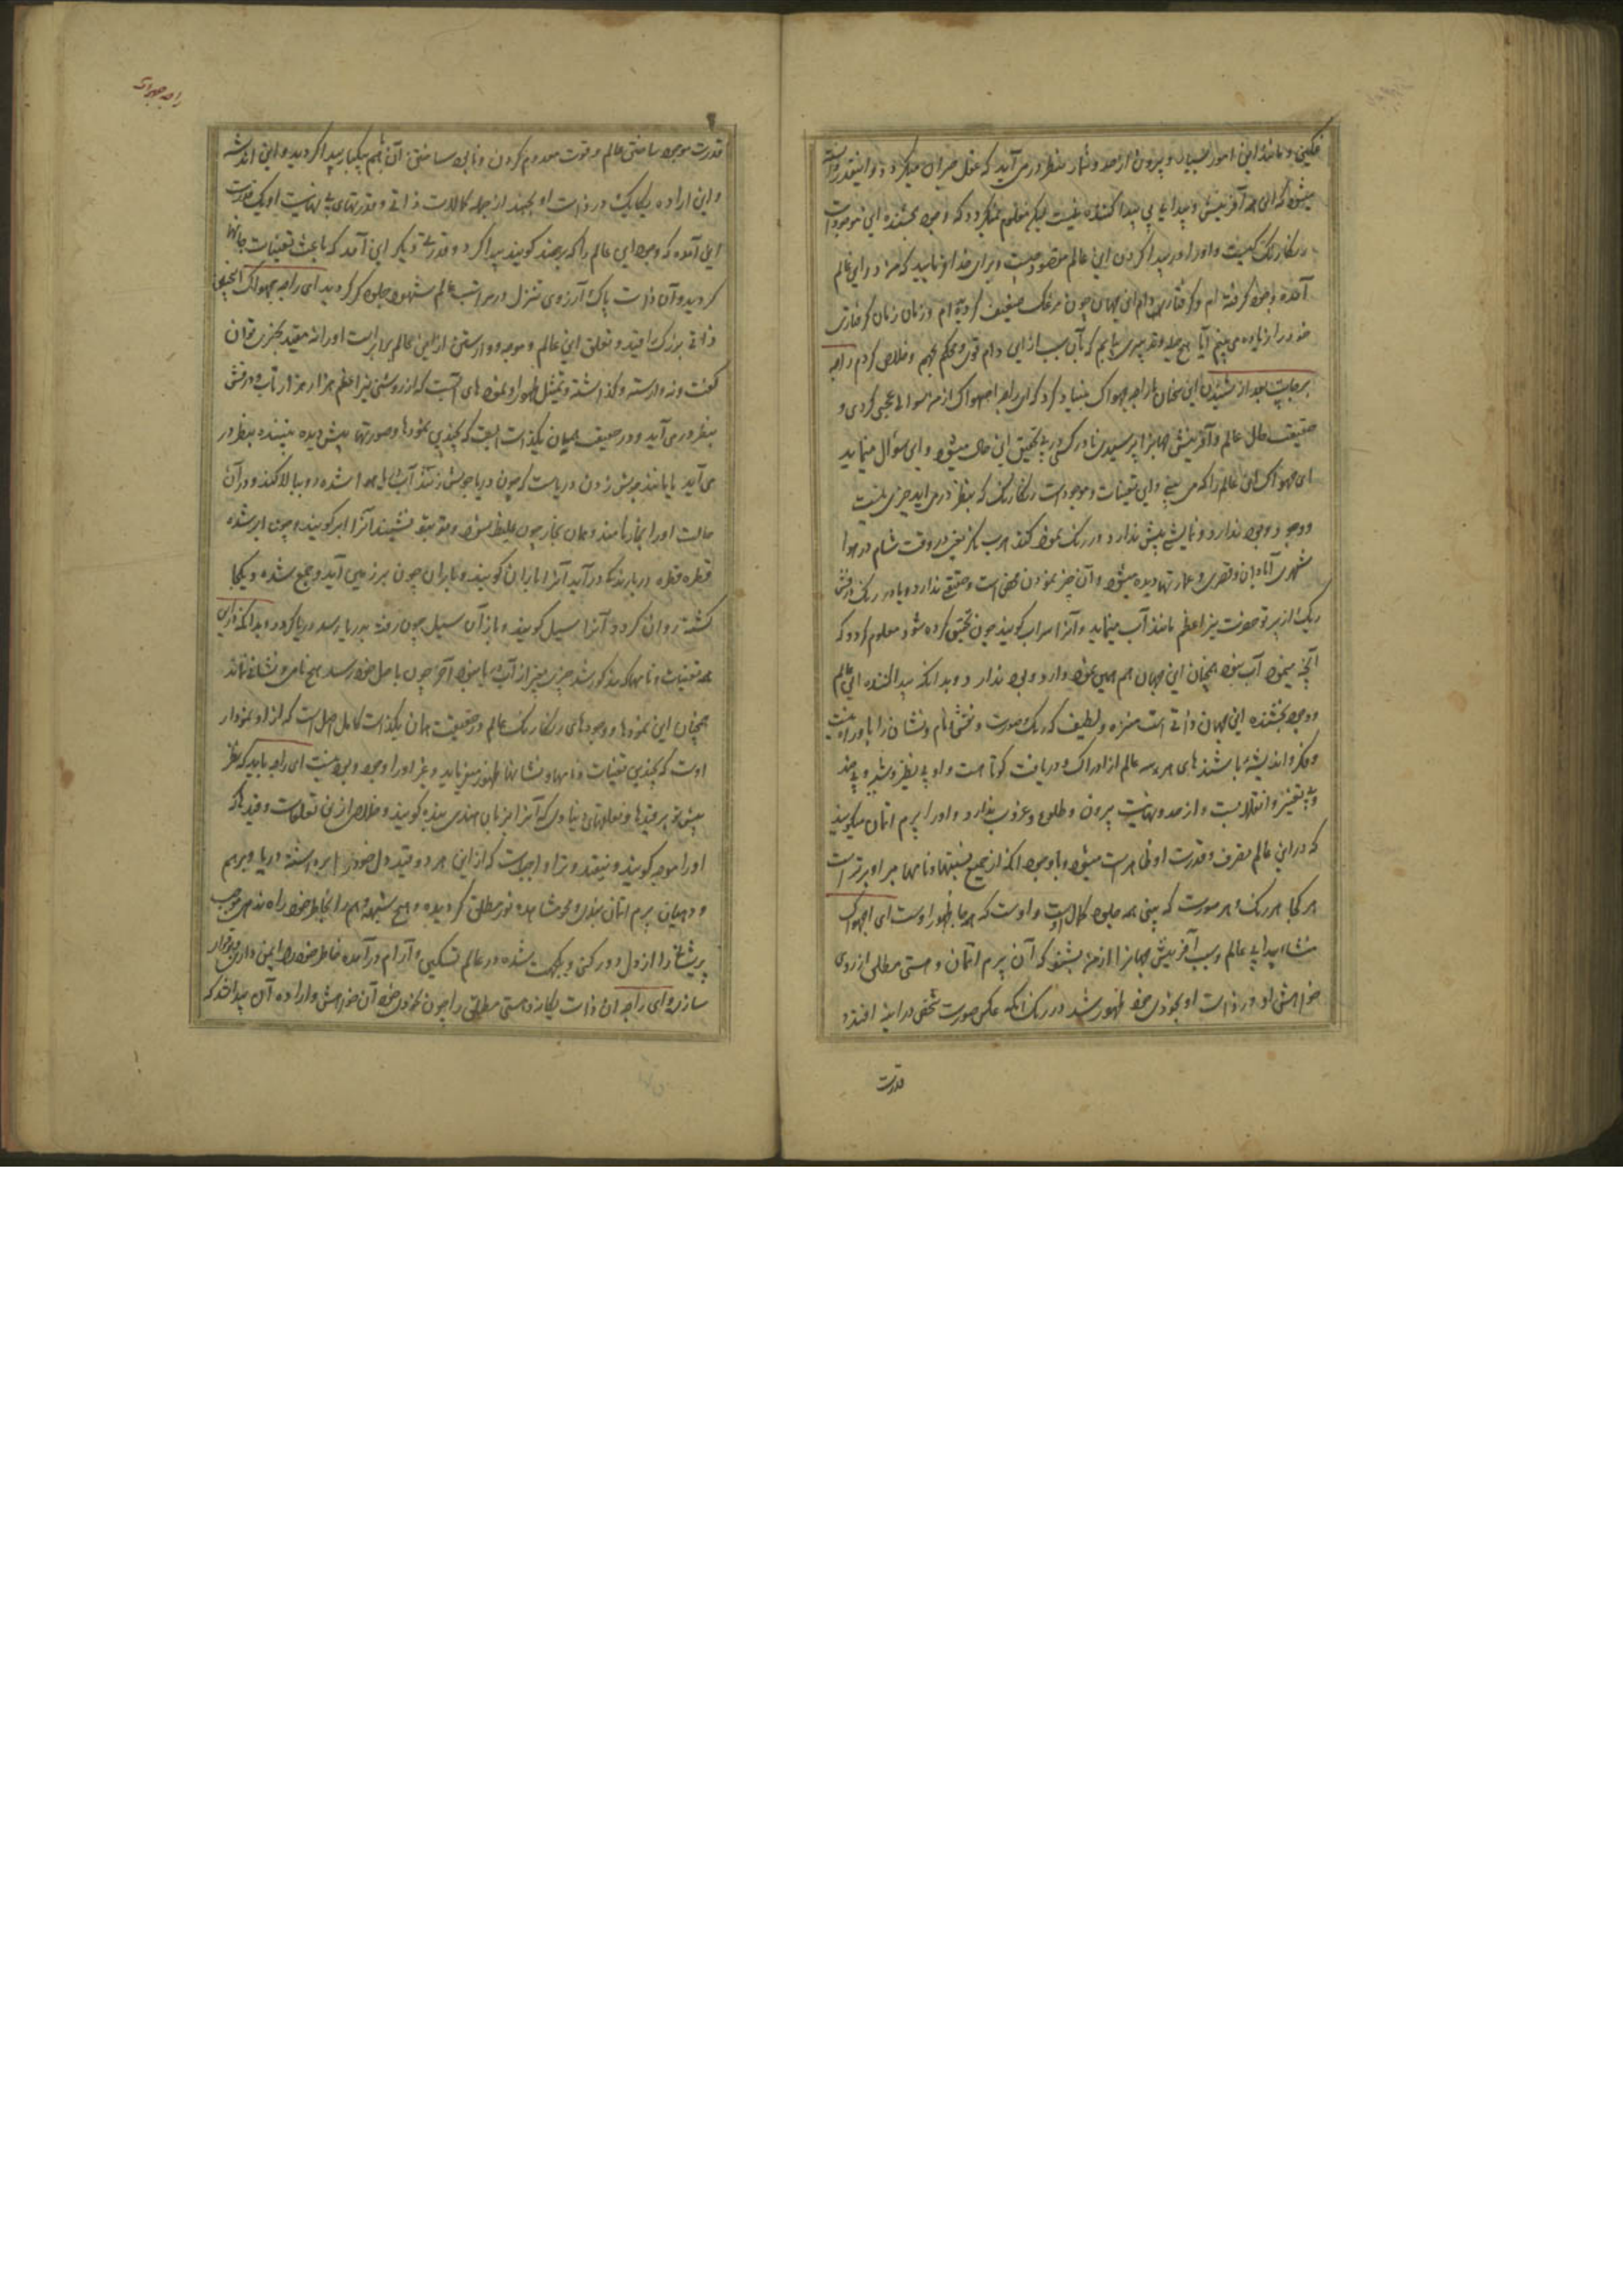 و مانند این امور بسیار و بیرون از حد و شمار بنظر در می آید که عقل حیران میگردد و اینقدر دانسته
میشود که این همه آفرینش و پیدایی بی پیدا کننده نیست لیکن معلوم نمیگردد که وجود بخشنده این موجودات
رنگارنگ کیست و او را در پیدا کردن این عالم مقصود چیست و برای خدا فرمایید که من در این عالم
آمده وجود گرفته ام و گرفتاری دام این جهان چون مرغک ضعیف گردیده ام و زمان زمان گرفتاری
خود را زیاده می بینم آیا هیچ حیله و تدبیری یابم که بآن سبب از این دام قوی و محکم بجهم و خلاص گردم راجه
بعد از شنیدن این سخنان با راجه بهواک بنیاد کرد که ای راجه بهواک از من سوالهای عجبی کردی و
حقیقت حال عالم و آفرینش جهان را پرسیدی نادر کسی در پی تحقیق این حال میشود و این سوال مینماید
ای بهواک این عالم را که می بینی و این تعینات و موجودات رنگارنگ که بنظر در می آید چیزی نیست
و وجود ندارد و نمایشی بیش ندارد در رنگ نمود گندهرب نگر یعنی در وقت شام در هوا
شهری آبادان و قصرها و عمارتها دیده میشود و آن جز نمودن محض است و حقیقتی ندارد و یا در رنگ درخش
ریگ از پرتو حضرت نیر اعظم مانند آب مینماید و آنرا سراب گویند چون تحقیق کرده شود معلوم گردد که
آنچه مینمود آب نبود همچنان این جهان هم همین نمود دارد و بود ندارد و بدانکه پیدا کننده این عالم
و وجود بخشنده این جهان ذاتی است منزه و لطیف که رنگ و صورت و نقش و نام و نشان را باو راه نیست
و فکر و اندیشه باشندهای هر سه عالم از ادراک و دریافت کوتاه است و او بی نظیر و شبه و بی ضد
و بی تغییر و انتقال است و از حد و نهایت بیرون و طلوع و غروب ندارد و او را پرم آتمان میگویند
که در این عالم تصرف و قدرت او ظاهر است میشود و با وجود آنکه از جمیع نسبتها و نامها مبرا و برتر است
هر کجا هر رنگ و هر صورت که بینی همه جلوه کمال اوست و اوست که همه جا ظهور اوست ای بهواک
منشاء پیدایی عالم و سبب آفرینش جهان را از من بشنو که آن پرم آتمان و هستی مطلق از روی
خواهش او در ذات او بخودی خود ظهور شد در رنگ آنکه عکس صورت شخص در آینه افتد و
قدرت
قدرت موجود ساختن عالم و قوت معدوم کردن و نابود ساختن آن هم یکبار پیدا گردید و این اندیشه
و این اراده یکایک در ذات او بجهد از جمله کمالات ذاتی و قدرتهای بی نهایت او یک قدرت
این آمده که وجود این عالم را که پرپنچ گویند پیدا کرد و قدرتی دیگر این آمد که باعث تعینات جانها
گردید و آن ذات پاک آرزوی تنزل در مراتب عالم شهود جلوه گر گردید ای راجه بهواک آنچنین
ذاتی بزرگ را قید و تعلق این عالم و موجود و وارستن از این عالم برابر است او را نه مقید بچیزی توان
گفت و نه وارسته و گذاشته و تمثیل ظهور او نمودهای آنست که از روشنی نیر اعظم هزار هزار تاب و درخش
بنظر در می آید و در حقیقت همان یکذات است که بچندین نمودها و صورتها پیش دیده بیننده بنظر در
می آید یا مانند جوش زدن دریاست که چون دریا جوش زند آب او هوا شده رو ببالا کند و در آن
حالت او را بخار نامند و همان بخار چون غلیظ شود و تو بتو نشیند آنرا ابر گویند و چون ابر شده
قطره قطره در بارندگی در آید آنرا باران گویند و باران چون بر زمین آید و جمع شده و یکجا
گشته روان گردد آنرا سیل گویند و باز آن سیل چون رفته بدریا رسد دریا گردد و بدانکه در این
همه تعینات و نامها که مذکور شد چیزی بغیر از آب دریا نبود آخر چون باصل خود رسد هیچ نامی و نشانی نماند
همچنان این نمودها و وجودهای رنگارنگ عالم در حقیقت همان یکذات کامل اصل است که از او نمودار
اوست که بچندین تعینات و نامها و نشانها ظهور میفرماید و غیر او را وجود و بود نیست ای راجه باید که نظر
پیش تو بر قیدها و تعلقهای دنیاوی که آنرا بزبان هندی بنده گویند و خلاص از این تعلقات و قیدها که
او را موچه گویند نیفتد و ترا واجب است که از این هر دو قید دل خود را برداشته در یاد پرم
و دهیان پرم آتمان بیندی و محو مشاهده نور مطلق گردیده و هیچ شبهه و وهم را بخاطر خود راه ندهی و موجب
پریشانی را از دل دور کنی و یکجهت شده در عالم تسکین و آرام در آمده خاطر خود را ایمن داری و برقرار
سازی و ای راجه آن ذات یگانه و هستی مطلق را چون بخودی خود آن خواهش و اراده آن پیدا شد که